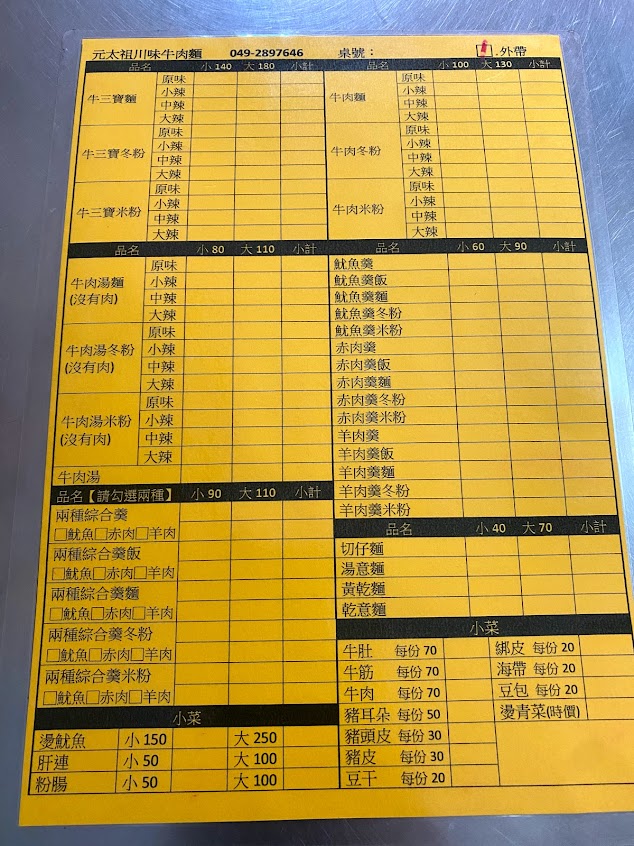 元太祖川味牛肉麵 049-2897646 桌號： □.外帶
品名 小 140 大 180 小計
牛三寶麵 原味
小辣
中辣
大辣
牛三寶冬粉 原味
小辣
中辣
大辣
牛三寶米粉 原味
小辣
中辣
大辣
品名 小 100 大 130 小計
牛肉麵 原味
小辣
中辣
大辣
牛肉冬粉 原味
小辣
中辣
大辣
牛肉米粉 原味
小辣
中辣
大辣
品名 小 80 大 110 小計
牛肉湯麵 (沒有肉) 原味
小辣
中辣
大辣
牛肉湯冬粉 (沒有肉) 原味
小辣
中辣
大辣
牛肉湯米粉 (沒有肉) 原味
小辣
中辣
大辣
牛肉湯
品名【請勾選兩種】 小 90 大 110 小計
兩種綜合羹
□魷魚□赤肉□羊肉
兩種綜合羹飯
□魷魚□赤肉□羊肉
兩種綜合羹麵
□魷魚□赤肉□羊肉
兩種綜合羹冬粉
□魷魚□赤肉□羊肉
兩種綜合羹米粉
□魷魚□赤肉□羊肉
小菜
燙魷魚 小 150 大 250
肝連 小 50 大 100
粉腸 小 50 大 100
品名 小 60 大 90 小計
魷魚羹
魷魚羹飯
魷魚羹麵
魷魚羹冬粉
魷魚羹米粉
赤肉羹
赤肉羹飯
赤肉羹麵
赤肉羹冬粉
赤肉羹米粉
羊肉羹
羊肉羹飯
羊肉羹麵
羊肉羹冬粉
羊肉羹米粉
品名 小 40 大 70 小計
切仔麵
湯意麵
黃乾麵
乾意麵
小菜
牛肚 每份 70 綁皮 每份 20
牛筋 每份 70 海帶 每份 20
牛肉 每份 70 豆包 每份 20
豬耳朵 每份 50 燙青菜(時價)
豬頭皮 每份 30
豬皮 每份 30
豆干 每份 20